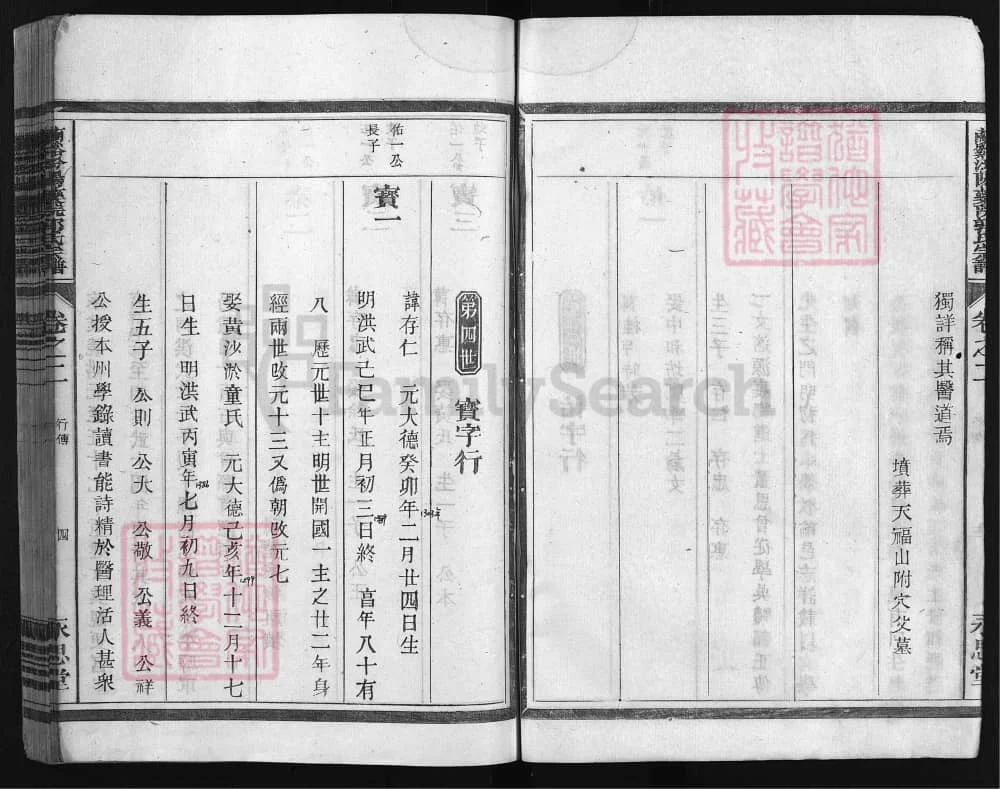 獨詳稱其醫道焉
墳葬天福山附穴父墓
第四世
寶字行
祐一公
長子
寶一
諱存仁 元大德癸卯年二月廿四日生
明洪武己巳年正月初三日終 享年八十有
八 歷元世十主明世開國一主之廿二年身
經兩世改元十三又僞朝改元七
娶黃沙淤童氏 元大德己亥年十二月十七
日生 明洪武丙寅年七月初九日終
生五子 公則 公大 公敬 公義 公祥
公授本州學錄讀書能詩精於醫理活人甚衆
卷之二
行傳
四
永思堂
卷之二
永思堂
FamilySearch